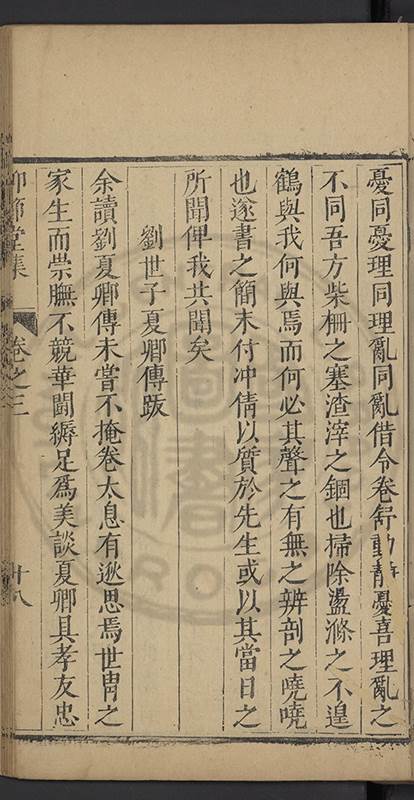 憂同憂理同理亂同亂借令卷舒動靜憂喜理亂之
不同吾方柴柵之塞渣滓之錮也掃除盪滌之不遑
鶴與我何與焉而何必其聲之有無之辨剖之嘵嘵
也遂書之簡末付冲倩以質於先生或以其當日之
所聞俾我共聞矣
劉世子夏卿傳跋
余讀劉夏卿傳未嘗不掩卷太息有遐思焉世胄之
家生而崇膴不競華闘縟足爲美談夏卿具孝友忠
仰節堂集
卷之三
十八